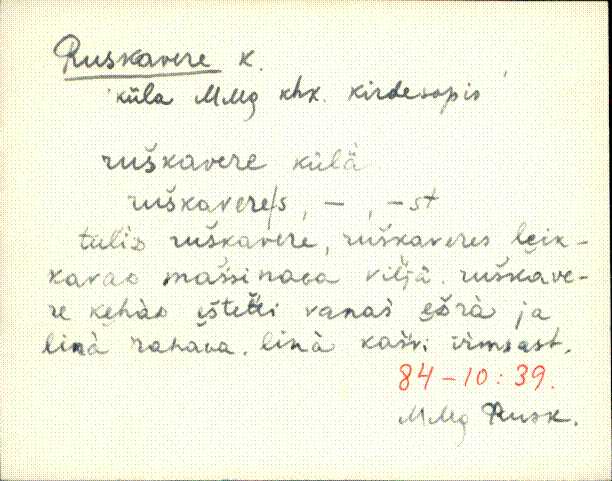 Ruskavere k.
küla MMg khk. kirdesopis
ruškavere külä
ruškavere/s, –, –st
tuliʙ ruškavere, ruškaveres leik-
kavaᴅ maššinaɢa viljä. ruškave-
re kehàᴅ ištetti vanàš ešrà ja
linà rahaɢa. linà kašvi irmsast.
84–10:39.
MMg Rusk.